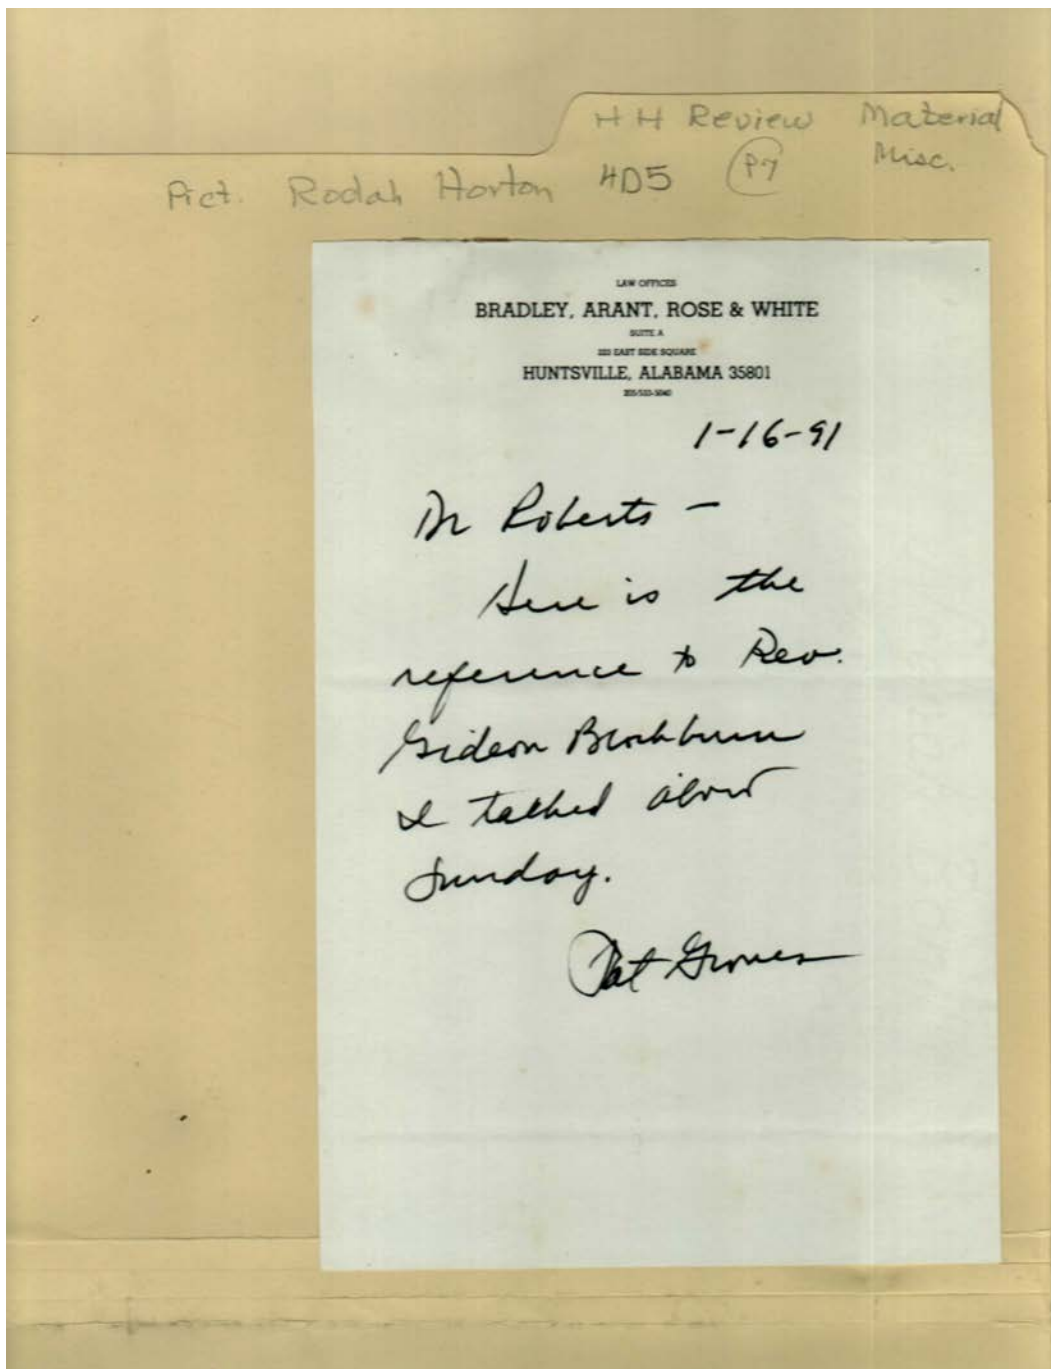 HH Review Material
Misc.
Pict. Rodah Horton HD5 P7
LAW OFFICES
BRADLEY, ARANT, ROSE & WHITE
SUITE A
EAST SIDE SQUARE
HUNTSVILLE, ALABAMA 35801
1-16-91
Dr Roberts —
Here is the
reference to Rev.
Gideon Blackburn
I talked about
Sunday.
Pat Graves